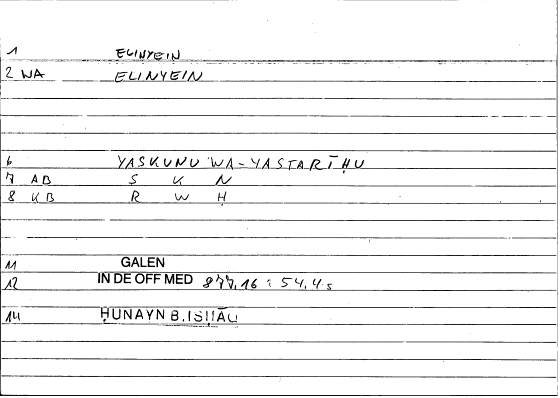 1 ELINYEIN
2 WA ELINYEIN
6 YASKUNU WA-YASTARĪḤU
7 AB S K N
8 KB R W Ḥ
11 GALEN
12 IN DE OFF MED 877,16 : 54,4s
14 ḤUNAYN B. ISḤĀQ